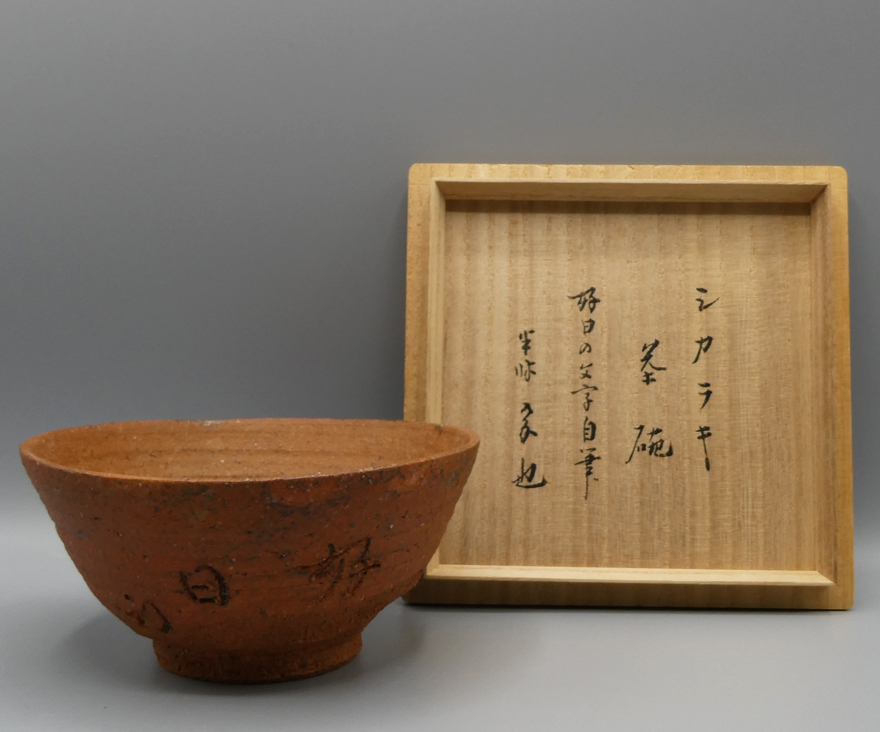 シカラキ
茶碗
好日の文字自筆
半床
也
好日